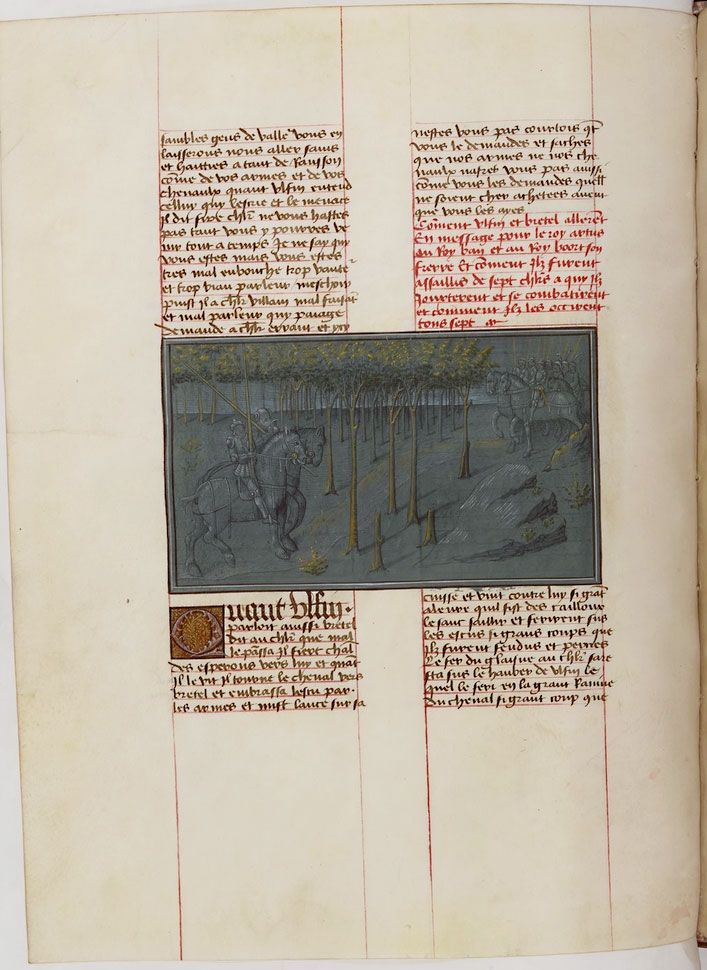 sambles gens de valle vous en
laisserons nous aller sains
et haities a tant de Ranson
cōme de vos armes et de vos
chevaulx quant Ulfin entend
celluy qui lescrie et le menace
il dit sire chlr ne vous hastes
pas tant vous y pourres ve
nir tout a temps Je ne say qui
vous estes mais vous estes
tres mal enbouche trop vante
et trop vian parleur meschoir
puist il a chlr villain mal faisāt
et mal parleur qui paiage
demande a chlr errant et
nestes vous pas courtois qt
vous le demandes et saches
que nos armes ne nos che
vaulx naires vous pas aussi
cōme vous les demandes quelz
ne soient cher achetees avent
que vous les ayes
Cōment Ulfin et bretel allerēt
En message pour le roy artus
au Roy ban et au Roy boort son
frere Et cōment Ilz furent
assaillis de sept chlrs a qui Ilz
Jousterent et se combatirent
et comment Ilz les occirent
tous sept
Quant Ulfin
parloit ainsi bretel
dit au chlr que mal
le pāssa il fiert chal
des esperons vers luy et quāt
il le vit Il tourne le cheval vers
bretel et enbrassa lescu par
les armes et mist lance sur sa
cuisse et vint contre luy si grāt
aleure quil fist des cailloux
le sanc saillir et ferirent sus
les escus si grans coups que
Ilz furent fendus et perces
Et le fer du glaive au chlr sare
sta sus le hauber de Ulfin le
quel le feri en la grant Ravine
du cheval si grant coup que